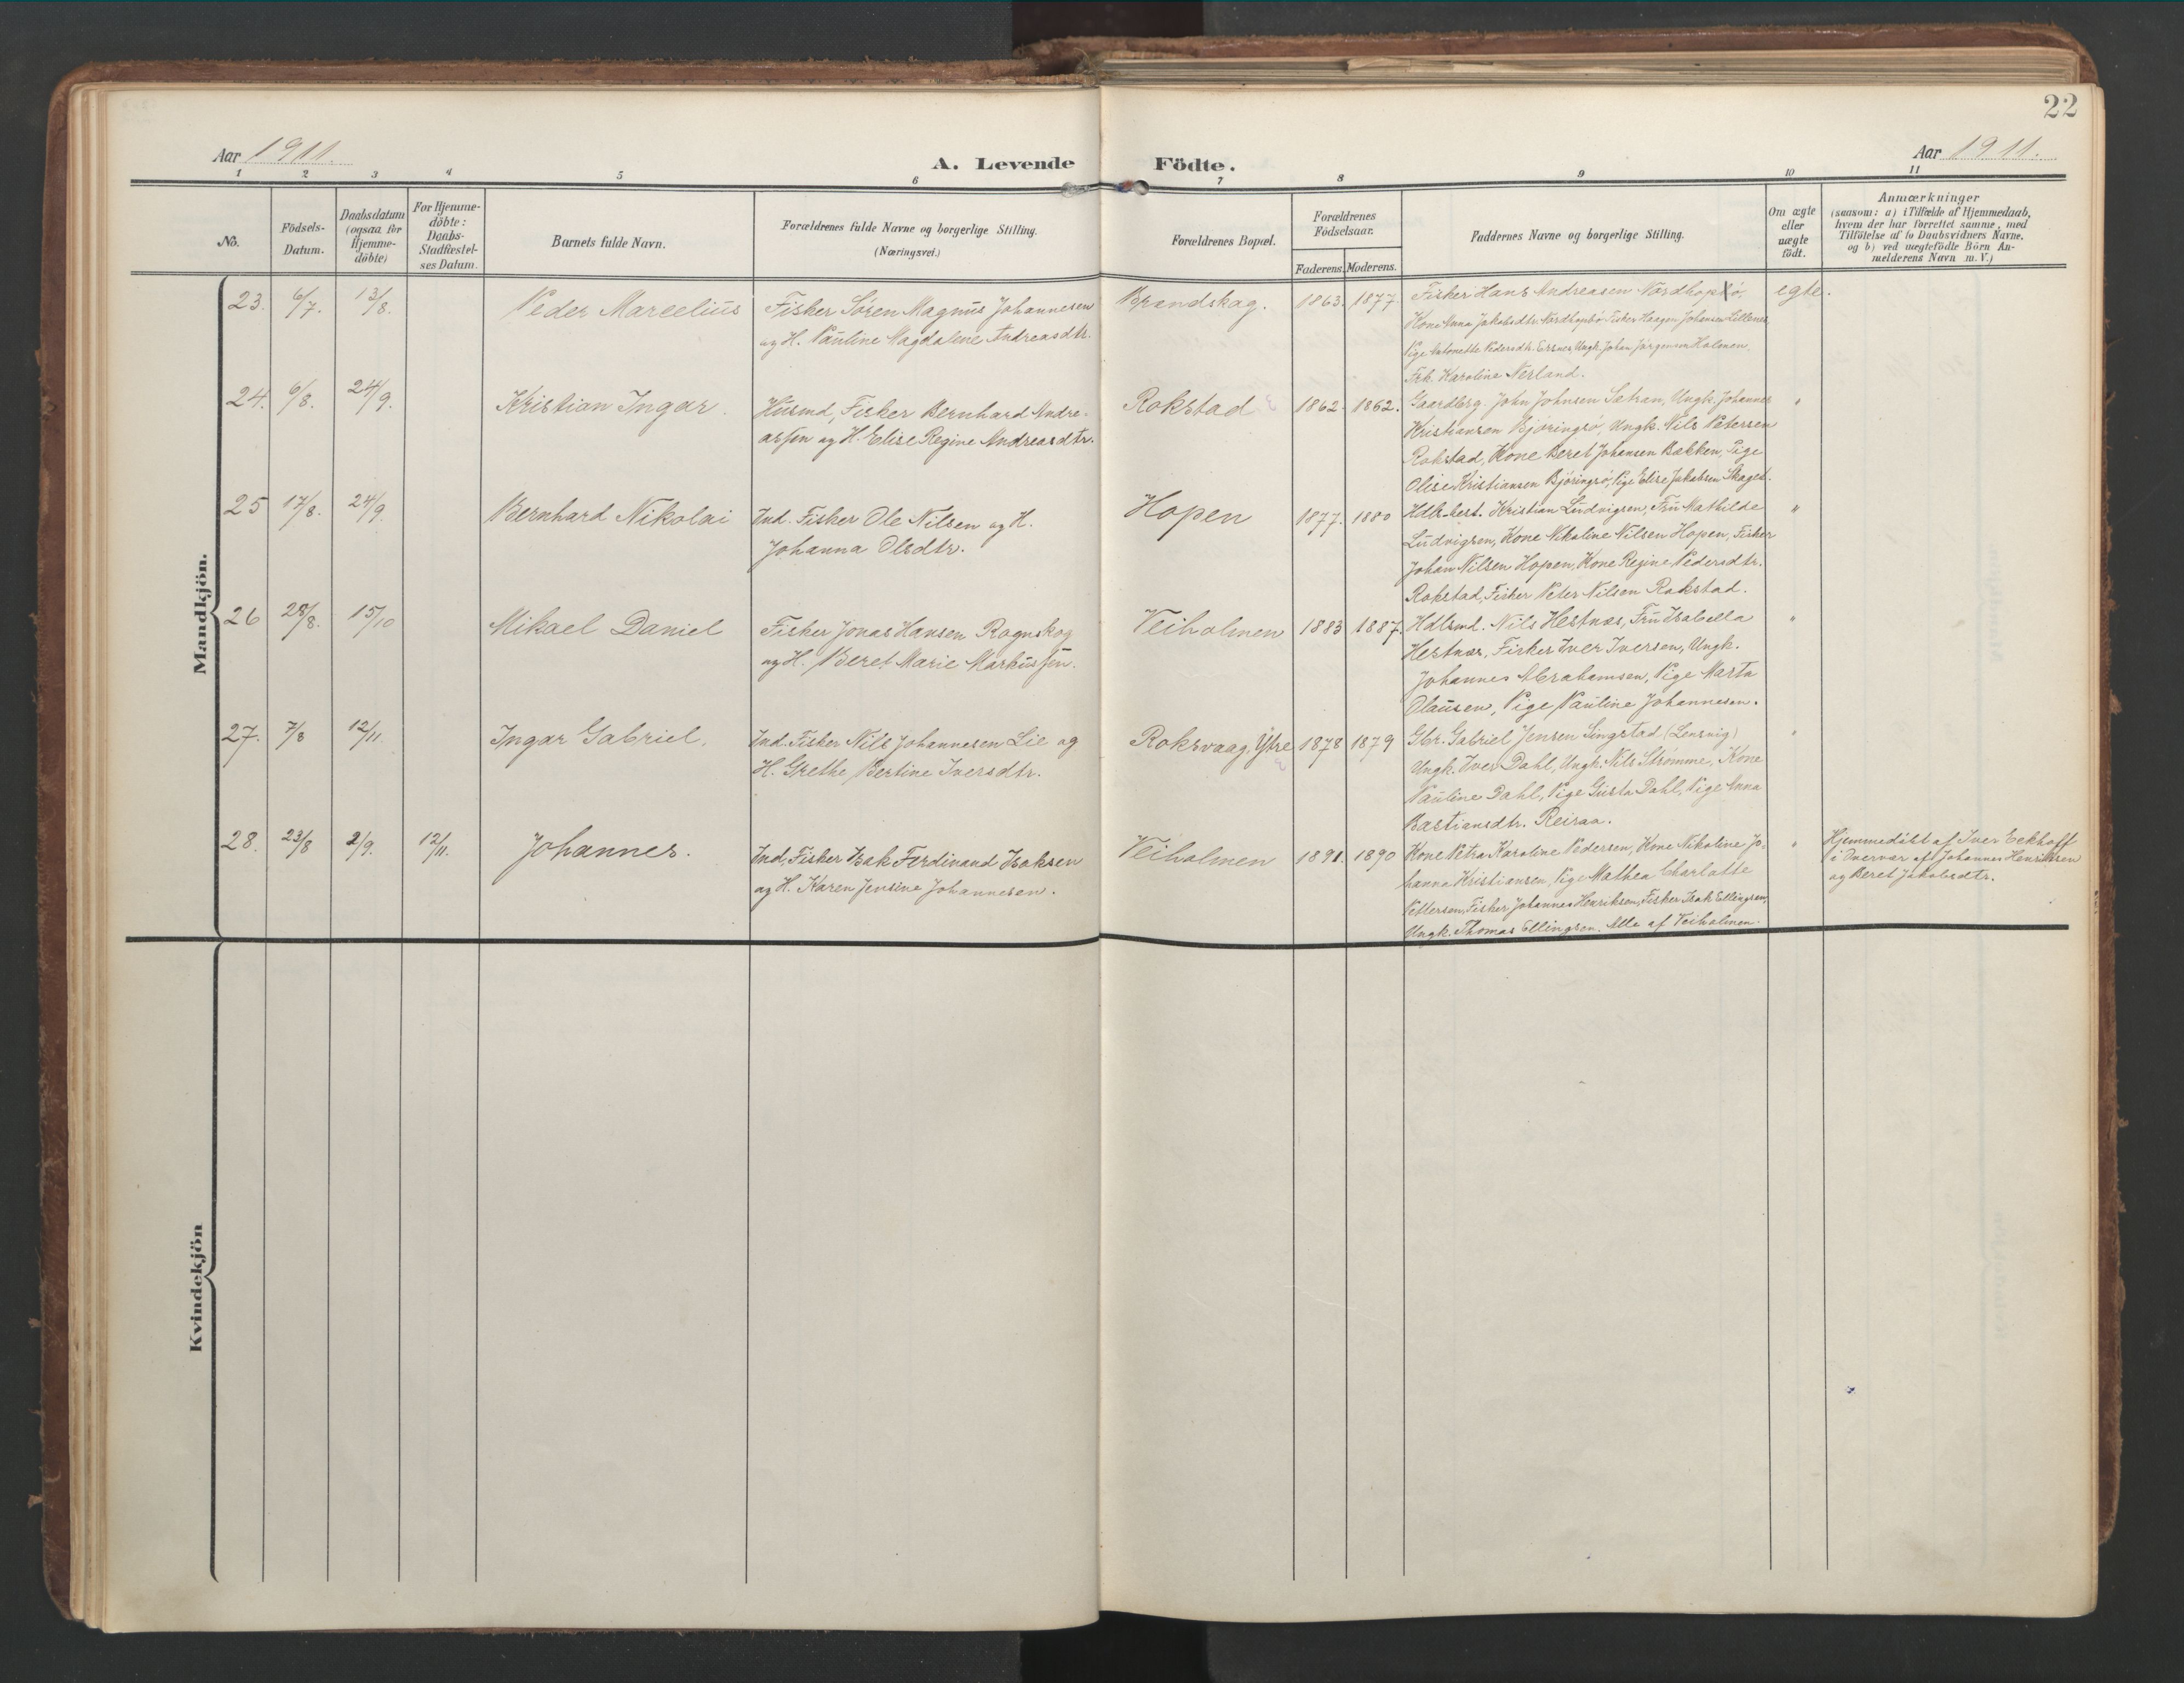 22
Aar 1911.
A. Levende Födte.
Aar 1911.
1 2 3 4 5 6 7 8 9 10 11
No.
Födsels-
Datum.
Daabsdatum
(ogsaa for
Hjemme-
döbte)
For Hjemme-
döbte:
Daabs-
Stadfæstel-
ses Datum.
Barnets fulde Navn.
Forældrenes fulde Navne og borgerlige Stilling.
(Næringsvei.)
Forældrenes Bopæl.
Forældrenes
Födselsaar.
Faderens. Moderens.
Faddernes Navne og borgerlige Stilling.
Om ægte
eller
uægte
födt.
Anmærkninger
(saasom: a) i Tilfælde af Hjemmedaab,
hvem der har forrettet samme, med
Tilföielse af to Daabsvidners Navne.
og b) ved uægtefödte Börn An-
melderens Navn m. V.)
Mandkjön.
23. 6/7. 13/8.
Peder Marcelius
Fisker Sören Magnus Johannesen
og H. Pauline Magdalene Andreasdtr.
Brandskag.
1863. 1877.
Fisker Hans Andreasen Nordhopö,
Kone Anna Jakobsdtr. Nordhopö Fisker Haagen Johansen Lillenes,
Pige Antonette Pedersdtr. Ersnes, Ungk. Johan Jörgensen Holmen.
Frk. Karoline Nerland.
egte.
24. 6/8. 24/9.
Kristian Ingar.
Husmd, Fisker Bernhard Andre-
assen og H. Elise Regine Andreasdtr.
Rokstad
1862. 1862.
Gaardbrg. John Johnsen Sætran, Ungk. Johannes
Kristiansen Björingsö, Ungk. Nils Petersen
Rokstad, Kone Beret Johansen Bækken, Pige
Olise Kristiansen Björingsö, Pige Elise Jakobsen Skaget.
"
25 17/8. 24/9.
Bernhard Nikolai
Ind. Fisker Ole Nilsen og H.
Johanna Olsdtr.
Hopen
1877. 1880
Hdls-best. Kristian Ludvigsen, Fru Mathilde
Ludvigsen, Kone Nikoline Nilsen Hopen, Fisker
Johan Nilsen Hopen, Kone Regine Pedersdtr.
Rokstad, Fisker Peter Nilsen Rokstad.
"
26 28/8. 15/10
Mikael Daniel
Fisker Jonas Hansen Rognskog
og H. Beret Marie Markussen.
Veiholmen
1883 1887.
Hdlsmd. Nils Hestnæs, Fru Isabella
Hestnæs, Fisker Iver Iversen, Ungk.
Johannes Abrahamsen, Pige Marta
Olausen, Pige Pauline Johannesen.
"
27. 7/8 12/11.
Ingar Gabriel.
Ind. Fisker Nils Johannesen Lie og
H. Grethe Bertine Iversdtr.
Roksvaag, Ytre
1878 1879
Gbr. Gabriel Jensen Singstad (Lensvig)
Ungk. Iver Dahl, Ungk. Nils Strömme, Kone
Pauline Dahl, Pige Gusta Dahl, Pige Anna
Bastiansdtr. Reiraa.
"
28. 23/8 2/9. 12/11.
Johannes.
Ind, Fisker Isak Ferdinand Isaksen
og H. Karen Jensine Johannesen.
Veiholmen
1891. 1890
Kone Petra Karoline Pedersen, Kone Nikoline Jo-
hanna Kristiansen, Pige Mathea Charlotte
Pettersen, Fisker Johannes Henriksen, Fisker Isak Ellingsen,
Ungk. Thomas Ellingsen. Alle af Veiholmen.
"
Hjemmedöbt af Iver Eckhoff
i Overvær af Johannes Henriksen
og Beret Jakobsdtr.
Kvindekjön